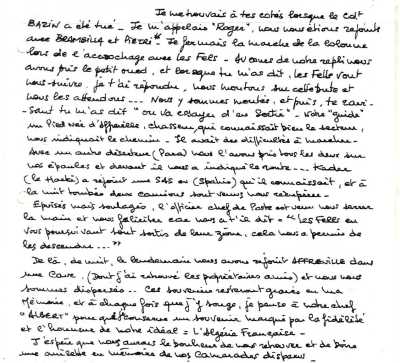 Je me trouvais à tes cotés lorsque le Cdt
BAZIN a été tué - Je m'appelais "Roger", nous nous étions rejoints
avec BRAMBILLA et PIETRI - Je fermais la marche de la colonne
lors de l'accrochage avec les Fels - Au cours de notre repli nous
avons pris le petit oued, et lorsque tu m'as dit, les Fells vont
nous suivre, je t'ai répondu, nous montons sur cette butte et
nous les attendons.... Nous y sommes montés, et puis, te ravi-
-sant tu m'as dit " on va essayer d'en sortir" - Notre "guide"
un Pied noir d'Affreville, chasseur, qui connaissait bien le secteur,
nous indiquait le chemin - Il avait des difficultés à marcher -
Avec un autre déserteur (Para) nous l'avons pris tous les deux sur
nos épaules et devant il nous a indiqué la route.... Kader
(le Harki) a rejoint une SAS ou (Spahis) qu'il connaissait, et à
la nuit tombée deux camions sont venus nous récupérer -
Epuisés mais soulagés, l'officier chef de Poste est venu nous serrer
la main et nous féliciter car nous a t'il dit = " Les Fells en
vous poursuivant sont sortis de leur zone, cela nous a permis de
les descendre.... "
De là, de nuit, le lendemain nous avons rejoint AFFREVILLE dans
une Cave, (Dont j'ai retrouvé les propriétaires amis) et nous nous
sommes dispersés.. Ces souvenirs resteront gravés en ma
Mémoire, et à chaque fois que j'y songe, je pense à notre chef
"ALBERT" pour qui l'on conserve un souvenir marqué par la fidélité
et l'honneur de notre idéal = l'Algérie Française -
J'espère que nous aurons le bonheur de nous retrouver et de boire
une anisette en mémoire de nos Camarades disparus -